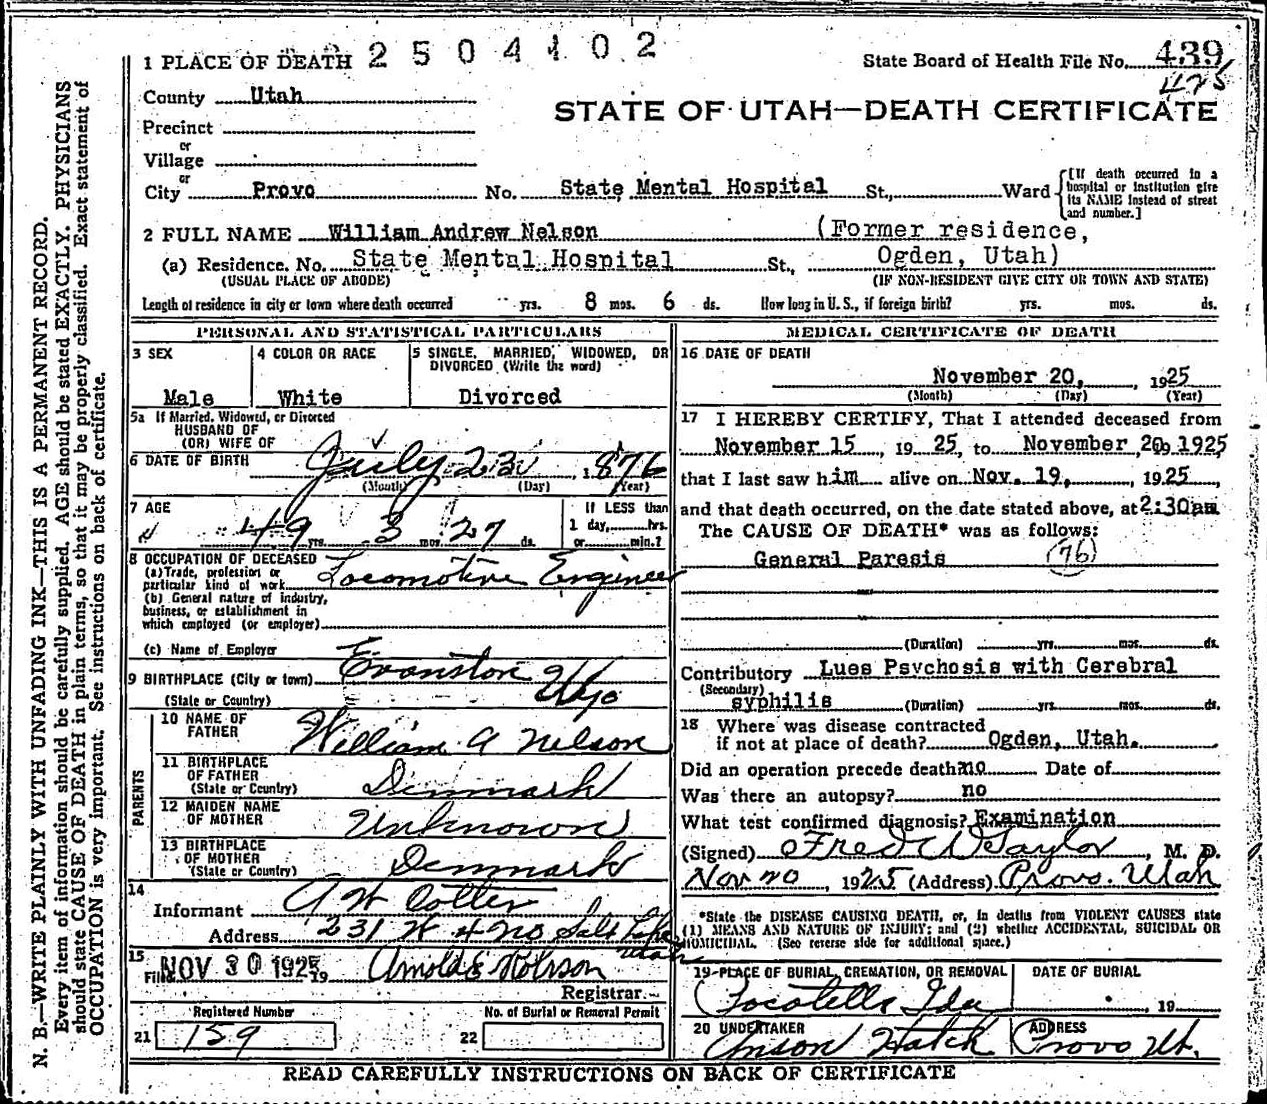 N. B.—WRITE PLAINLY WITH UNFADING INK—THIS IS A PERMANENT RECORD.
Every item of information should be carefully supplied. AGE should be stated EXACTLY. PHYSICIANS
should state CAUSE OF DEATH in plain terms, so that it may be properly classified. Exact statement of
OCCUPATION is very important. See instructions on back of certificate.
1 PLACE OF DEATH 2504102
State Board of Health File No. 439
425
County Utah
STATE OF UTAH—DEATH CERTIFICATE
Precinct
or
Village
or
City Provo No. State Mental Hospital St., Ward
[If death occurred in a
hospital or institution give
its NAME instead of street
and number.]
2 FULL NAME William Andrew Nelson (Former residence,
(a) Residence. No. State Mental Hospital St., Ogden, Utah)
(USUAL PLACE OF ABODE) (IF NON-RESIDENT GIVE CITY OR TOWN AND STATE)
Length of residence in city or town where death occurred yrs. 8 mos. 6 ds. How long in U. S., if foreign birth? yrs. mos. ds.
PERSONAL AND STATISTICAL PARTICULARS
3 SEX
Male
4 COLOR OR RACE
White
5 SINGLE, MARRIED, WIDOWED, OR
DIVORCED (Write the word)
Divorced
5a If Married, Widowed, or Divorced
HUSBAND OF
(OR) WIFE OF
6 DATE OF BIRTH July 23, 1876
(Month) (Day) (Year)
7 AGE 49 yrs. 3 mos. 27 ds.
If LESS than
1 day, hrs.
or min.?
8 OCCUPATION OF DECEASED
(a) Trade, profession or
particular kind of work Locomotive Engineer
(b) General nature of industry,
business, or establishment in
which employed (or employer)
(c) Name of Employer
9 BIRTHPLACE (City or town) Evanston
(State or Country) Wyo
PARENTS
10 NAME OF
FATHER William A Nelson
11 BIRTHPLACE
OF FATHER
(State or Country) Denmark
12 MAIDEN NAME
OF MOTHER Unknown
13 BIRTHPLACE
OF MOTHER
(State or Country) Denmark
14
Informant A W Cotter
Address 231 W 4 No Salt Lake
Utah
15 Filed NOV 30 1925 19 Arnold E Robison
Registrar.
Registered Number
21 159
No. of Burial or Removal Permit
22
MEDICAL CERTIFICATE OF DEATH
16 DATE OF DEATH
November 20, 1925
(Month) (Day) (Year)
17 I HEREBY CERTIFY, That I attended deceased from
November 15, 1925, to November 20, 1925
that I last saw him alive on Nov. 19, 1925,
and that death occurred, on the date stated above, at 2:30am
The CAUSE OF DEATH* was as follows:
General Paresis (76)
(Duration) yrs. mos. ds.
Contributory Lues Psychosis with Cerebral
(Secondary)
syphilis (Duration) yrs. mos. ds.
18 Where was disease contracted
if not at place of death? Ogden, Utah.
Did an operation precede death? no Date of
Was there an autopsy? no
What test confirmed diagnosis? Examination
(Signed) Fred W Taylor, M. D.
Nov 20, 1925 (Address) Provo. Utah
*State the DISEASE CAUSING DEATH, or, in deaths from VIOLENT CAUSES state
(1) MEANS AND NATURE OF INJURY; and (2) whether ACCIDENTAL, SUICIDAL OR
HOMICIDAL. (See reverse side for additional space.)
19 PLACE OF BURIAL, CREMATION, OR REMOVAL
Pocatello Ida
DATE OF BURIAL
19
20 UNDERTAKER
Anson Hatch
ADDRESS
Provo Ut.
READ CAREFULLY INSTRUCTIONS ON BACK OF CERTIFICATE